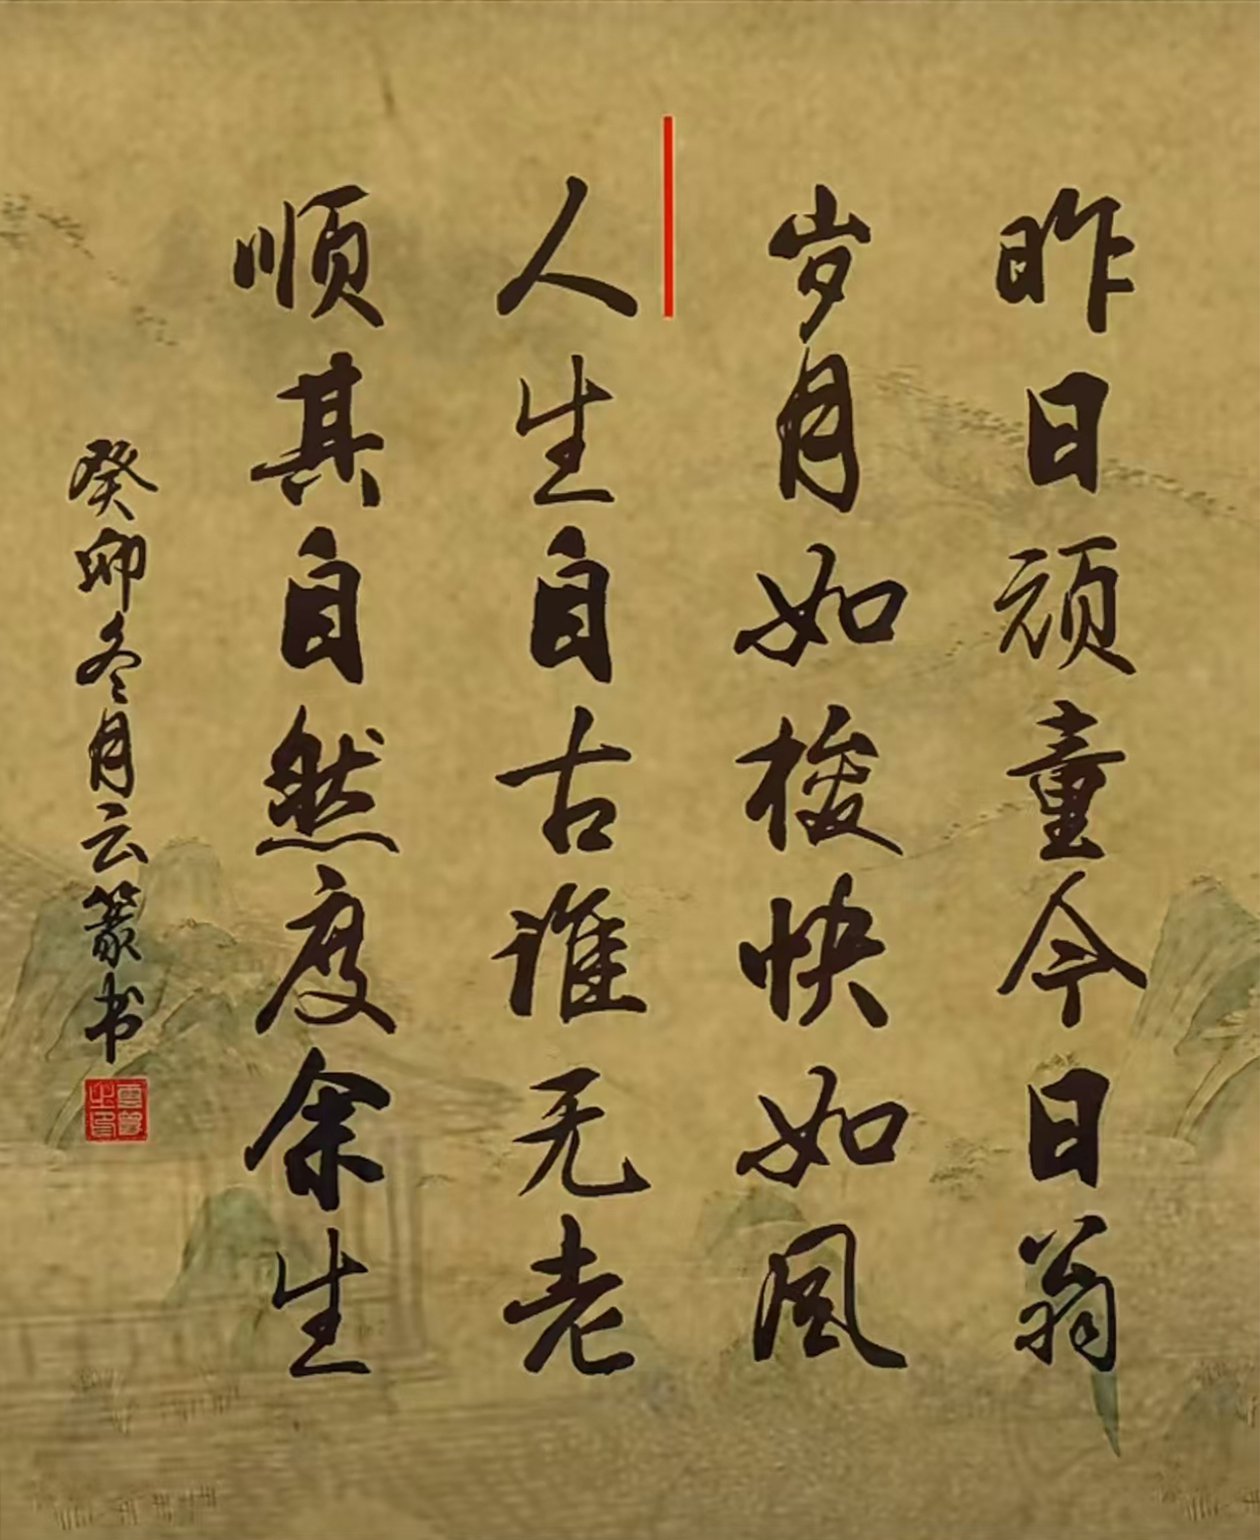 昨日顽童今日翁
岁月如梭快如风
人生自古谁无老
顺其自然度余生
癸卯冬月云篆书